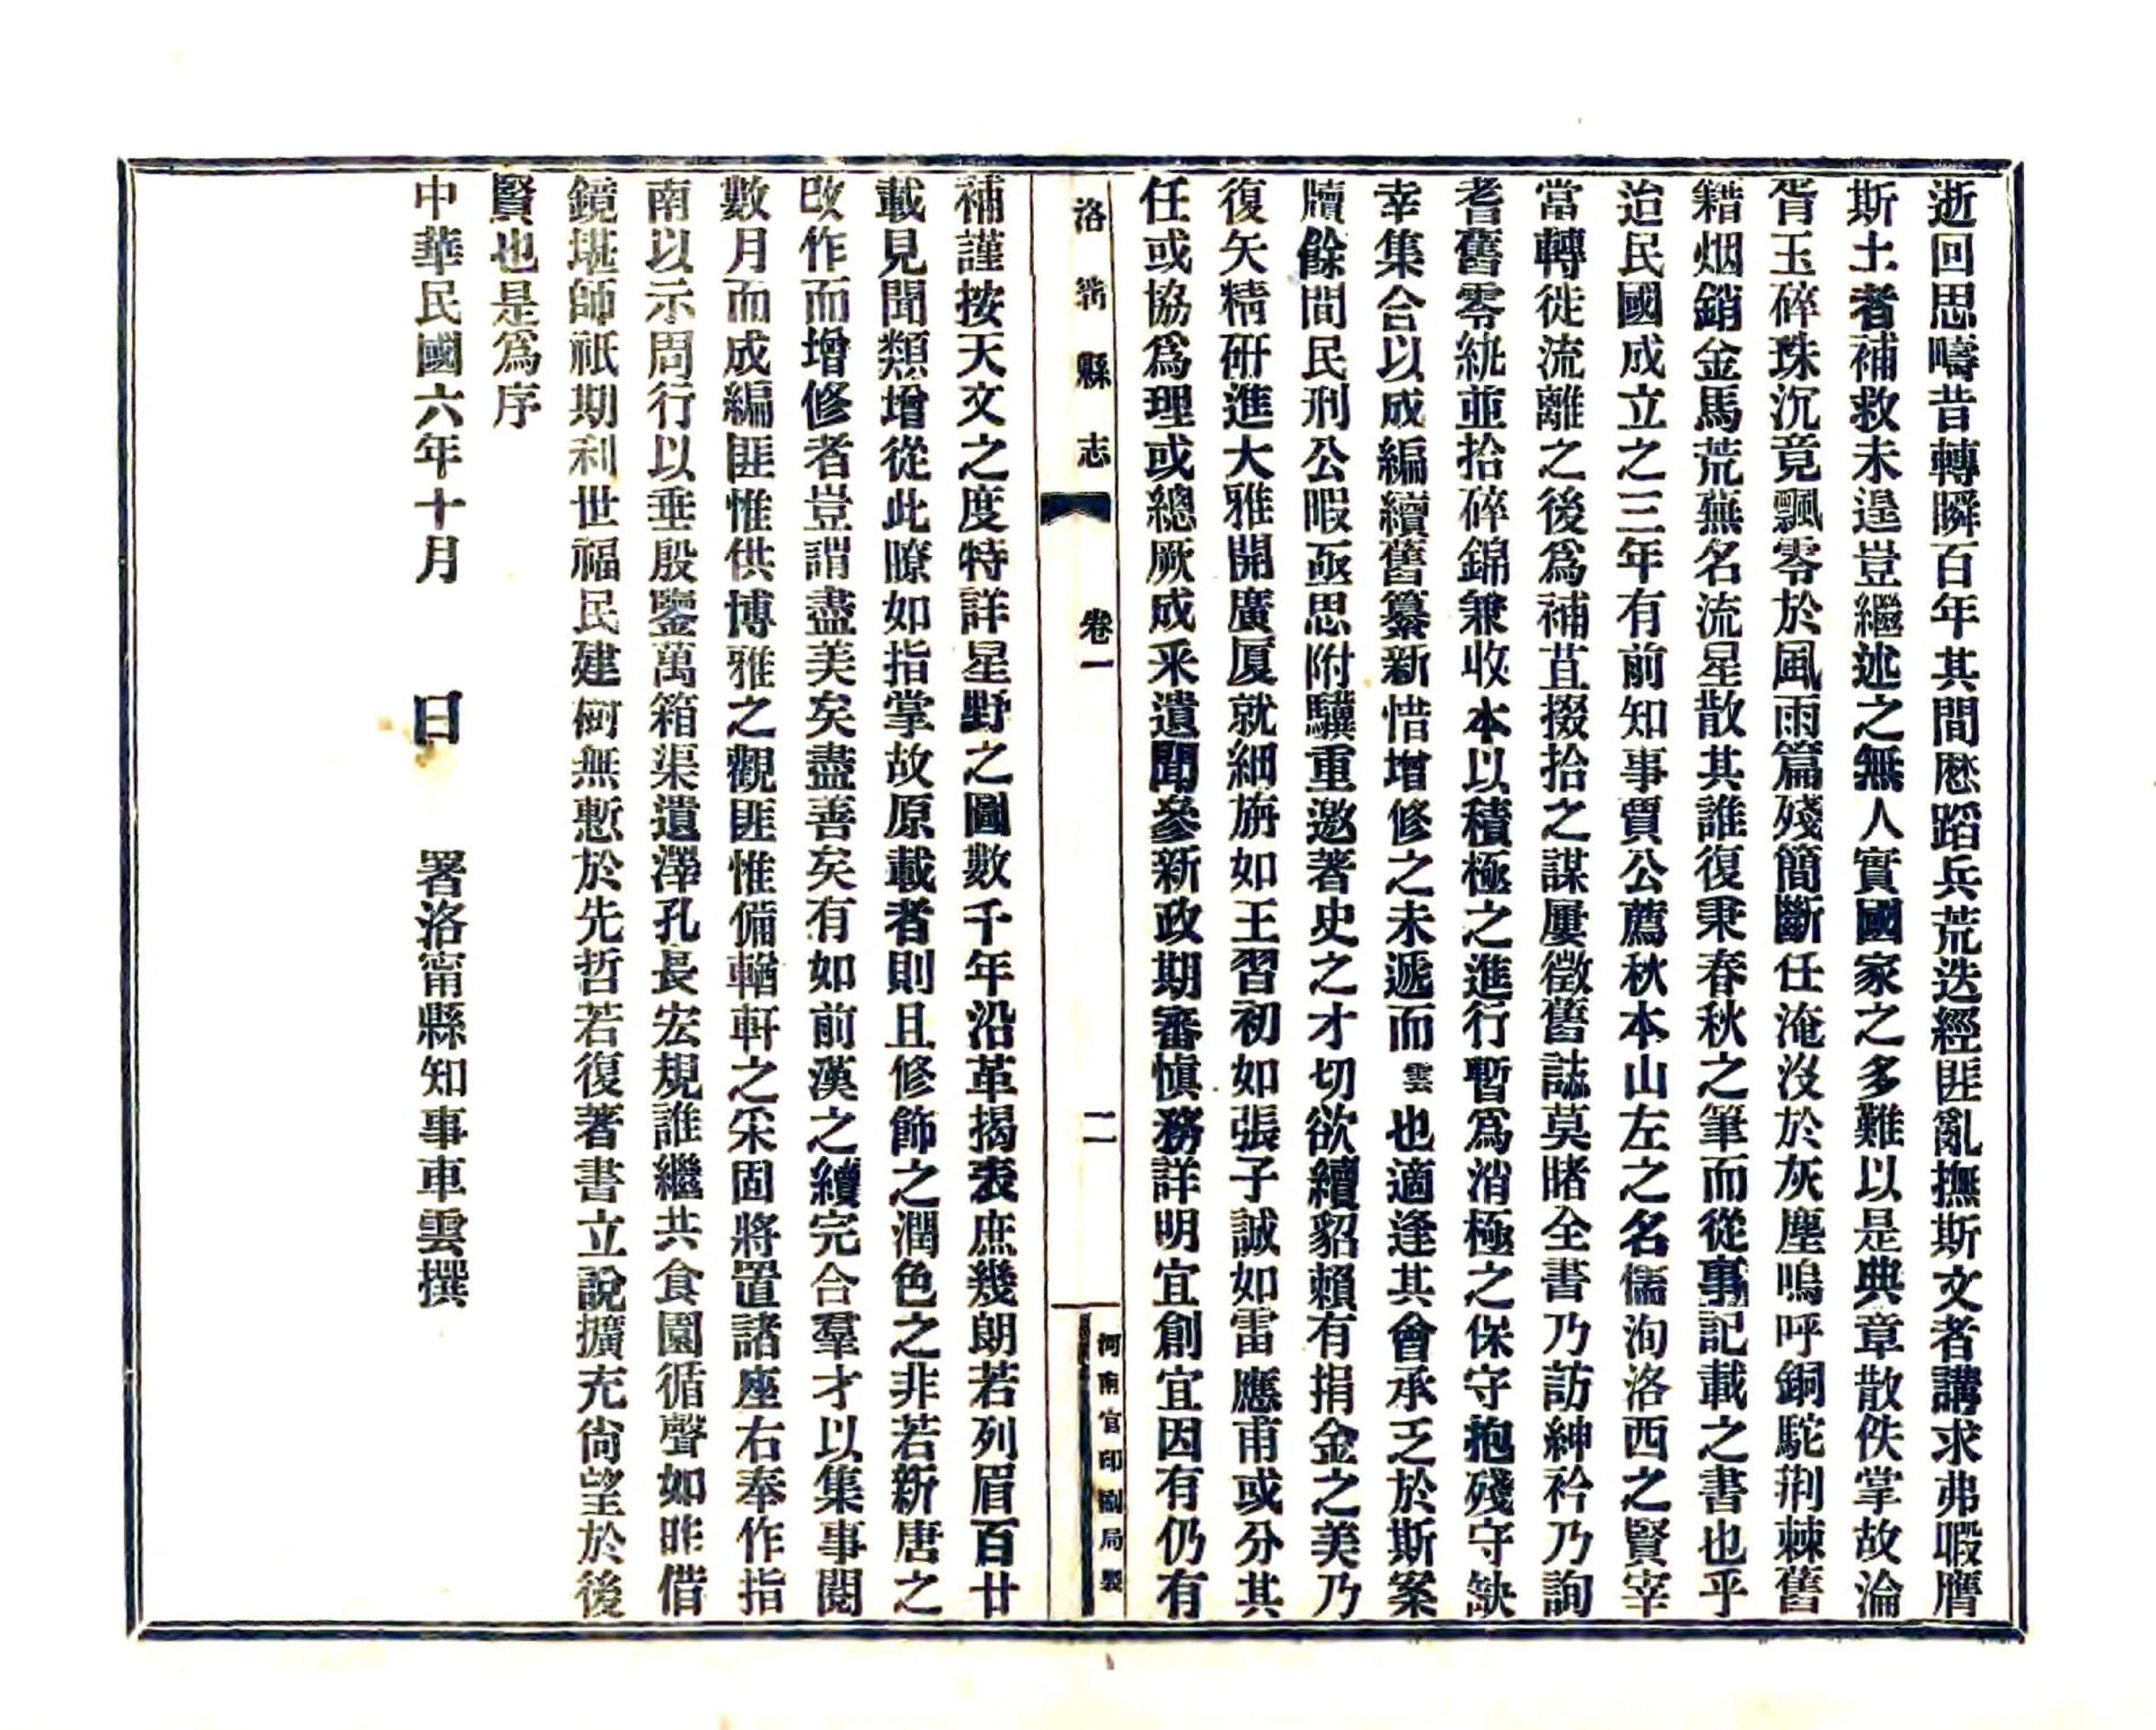 逝回思疇昔轉瞬百年其間慝蹈兵荒迭經匪亂撫斯文者講求弗暇膺
斯土者補救未遑豈繼述之無人實國家之多難以是典章散佚掌故淪
胥玉碎珠沉竟飄零於風雨篇殘簡斷任淹沒於灰塵嗚呼銅駝荆棘舊
籍烟銷金馬荒蕪名流星散其誰復秉春秋之筆而從事記載之書也乎
迨民國成立之三年有前知事賈公薦秋本山左之名儒洵洛西之賢宰
當轉徙流離之後爲補苴掇拾之謀屢徵舊誌莫睹全書乃訪紳衿乃詢
耆舊零紈並拾碎錦兼收本以積極之進行暫爲消極之保守抱殘守缺
幸集合以成編續舊纂新惜增修之未遞而雲也適逢其會承乏於斯案
牘餘間民刑公暇亟思附驥重邀著史之才切欲續貂賴有捐金之美乃
復矢精研進大雅開廣厦就細旃如王習初如張子誠如雷應甫或分其
任或協爲理或總厥成采遺聞參新政期審慎務詳明宜創宜因有仍有
洛甯縣志
卷一
二
河南官印刷局製
補謹按天文之度特詳星野之圖數千年沿革揭表庶幾朗若列眉百廿
載見聞類增從此瞭如指掌故原載者則且修飾之潤色之非若新唐之
改作而增修者豈謂盡美矣盡善矣有如前漢之續完合羣才以集事閱
數月而成編匪惟供博雅之觀匪惟備輶軒之采固將置諸座右奉作指
南以示周行以垂殷鑒萬箱渠遺澤孔長宏規誰繼共食園循聲如昨借
鏡堪師祇期利世福民建樹無慙於先哲若復著書立說擴充尙望於後
賢也是爲序
中華民國六年十月 日 署洛甯縣知事車雲撰